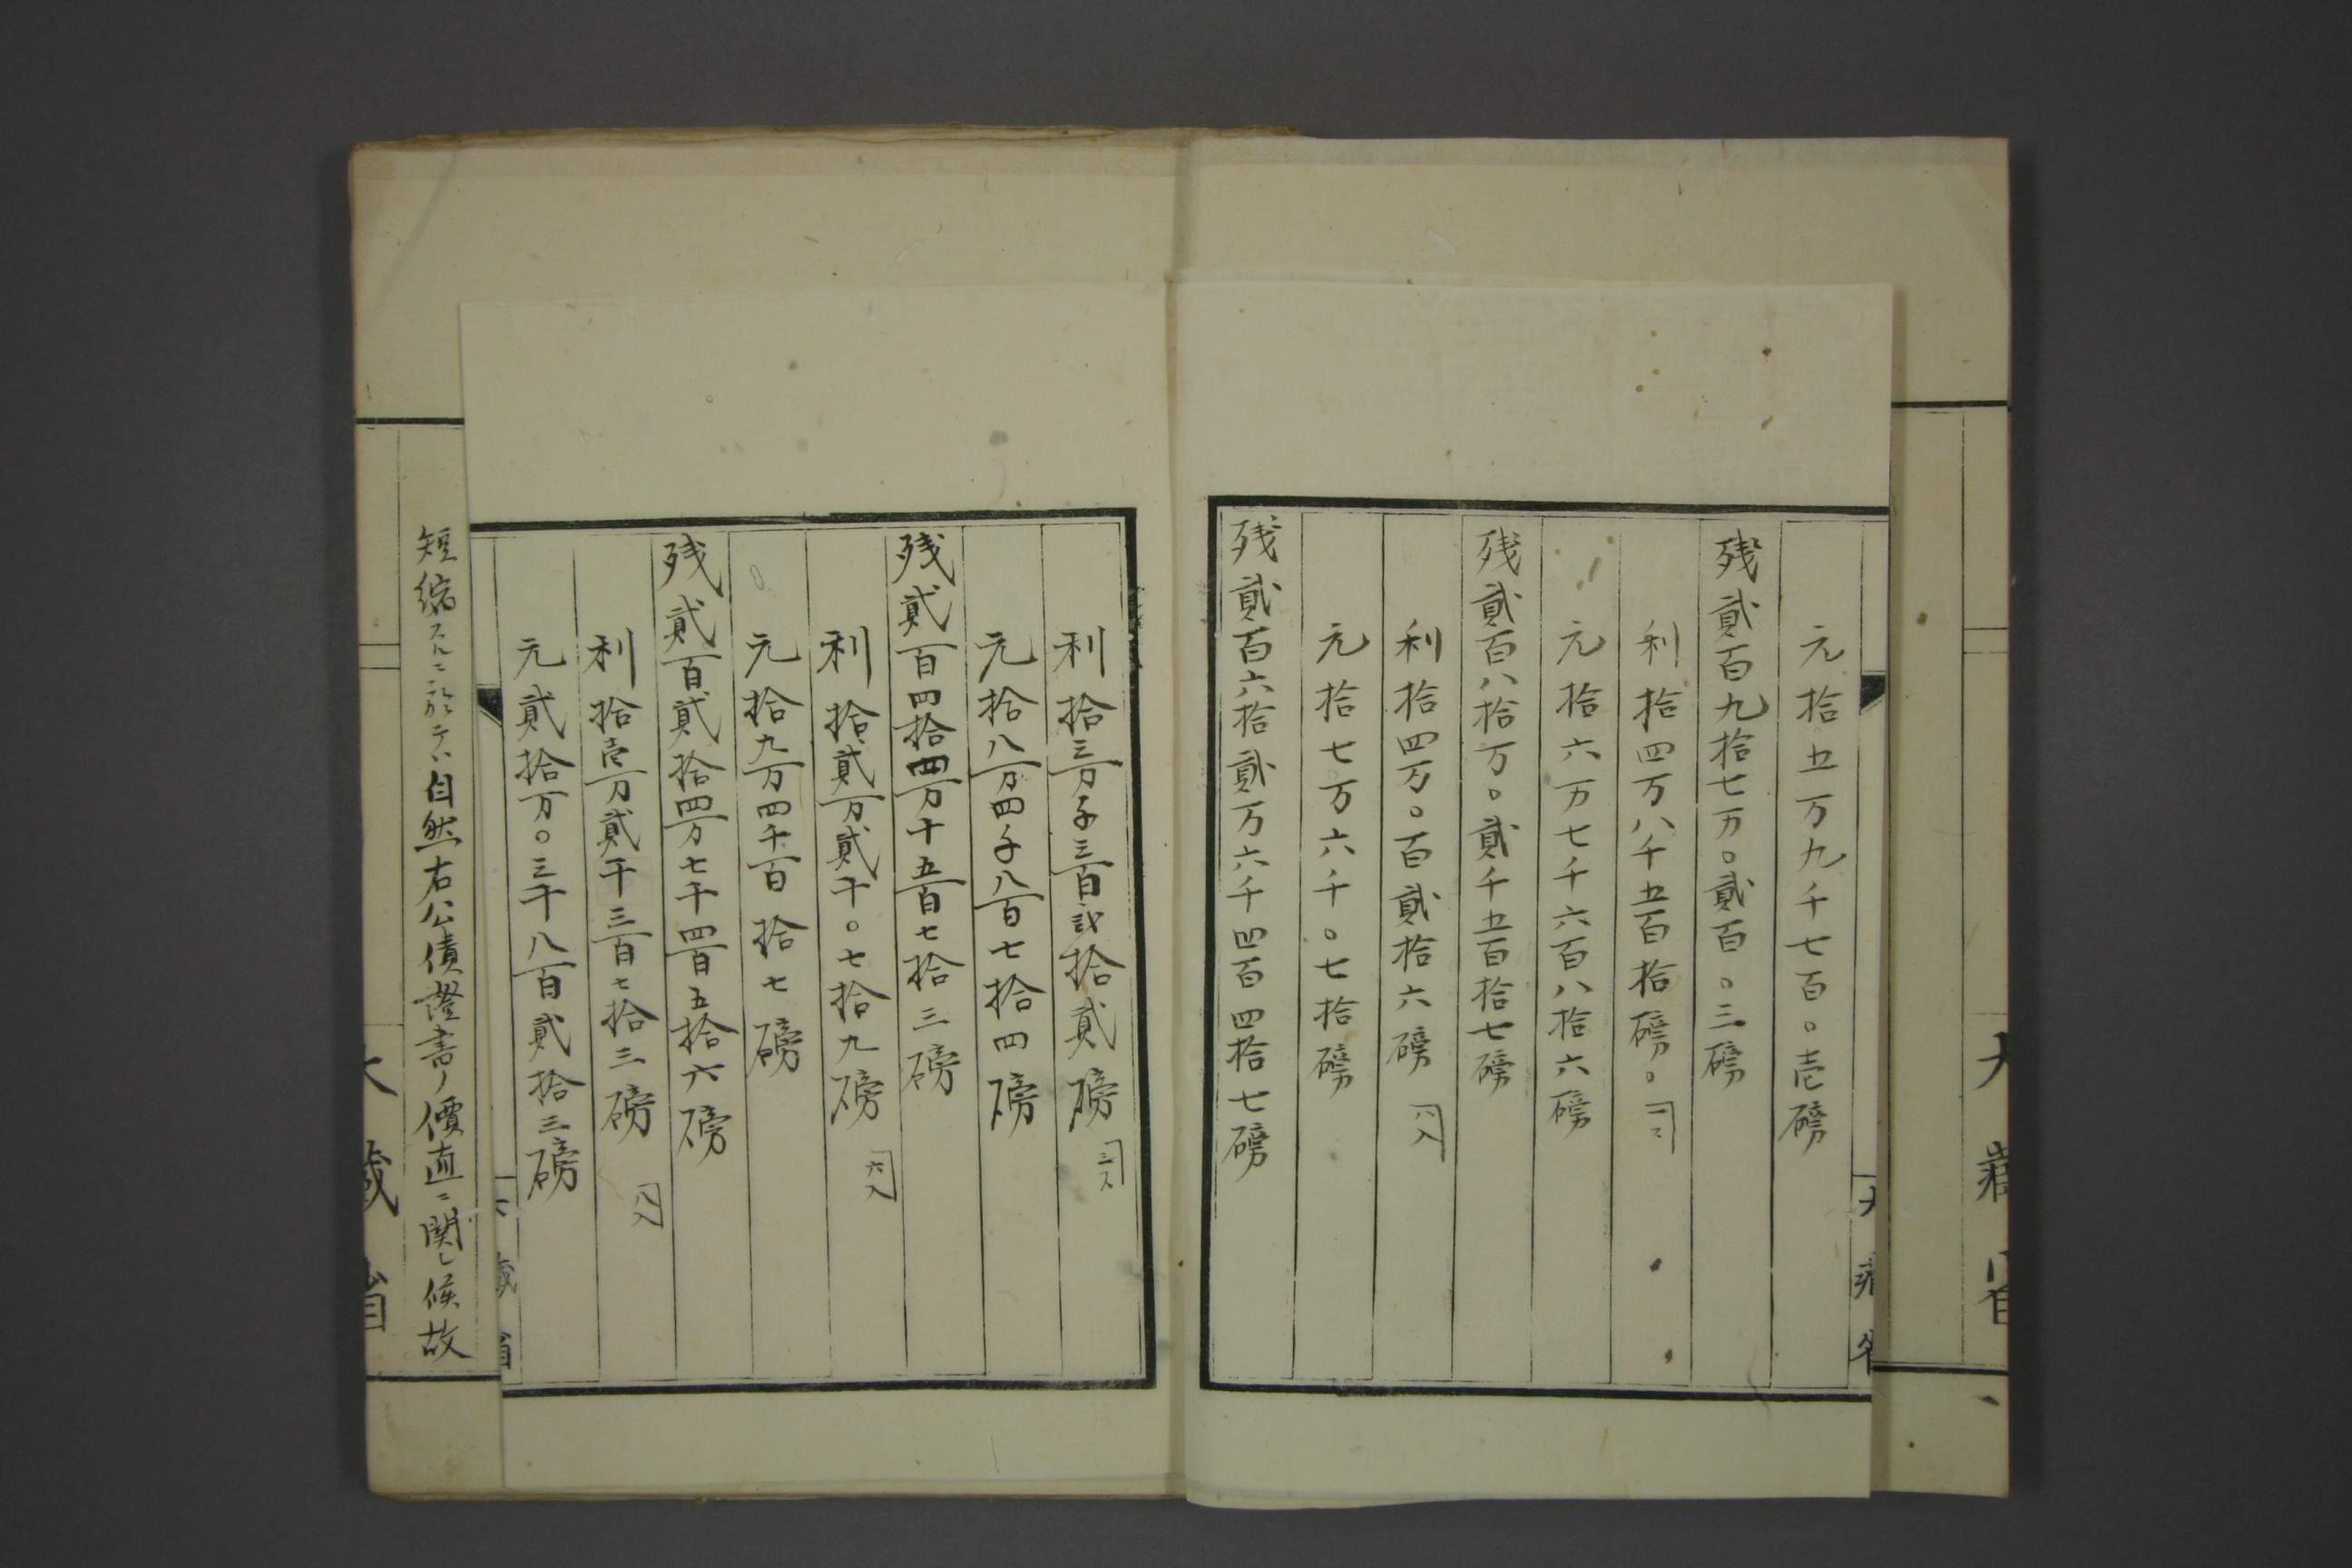 大藏省
大藏省
元拾五万九千七百〇壱磅
残貳百九拾七万〇貳百〇三磅
利拾四万八千五百拾磅〇
元拾六万七千六百八拾六磅
残貳百八拾万〇貳千五百拾七磅
利拾四万〇百貳拾六磅 八入
元拾七万六千〇七拾磅
残貳百六拾貳万六千四百四拾七磅
利拾三万千三百貳拾貳磅
元拾八万四千八百七拾四磅
残貳百四拾四万千五百七拾三磅
利拾貳万貳千〇七拾九磅 六入
元拾九万四千百拾七磅
残貳百貳拾四万七千四百五拾六磅
利拾壱万貳千三百七拾三磅 八入
元貳拾万〇三千八百貳拾三磅
大藏省
短縮スルニ於テハ自然右公債證書ノ價直ニ関シ候故
大藏省